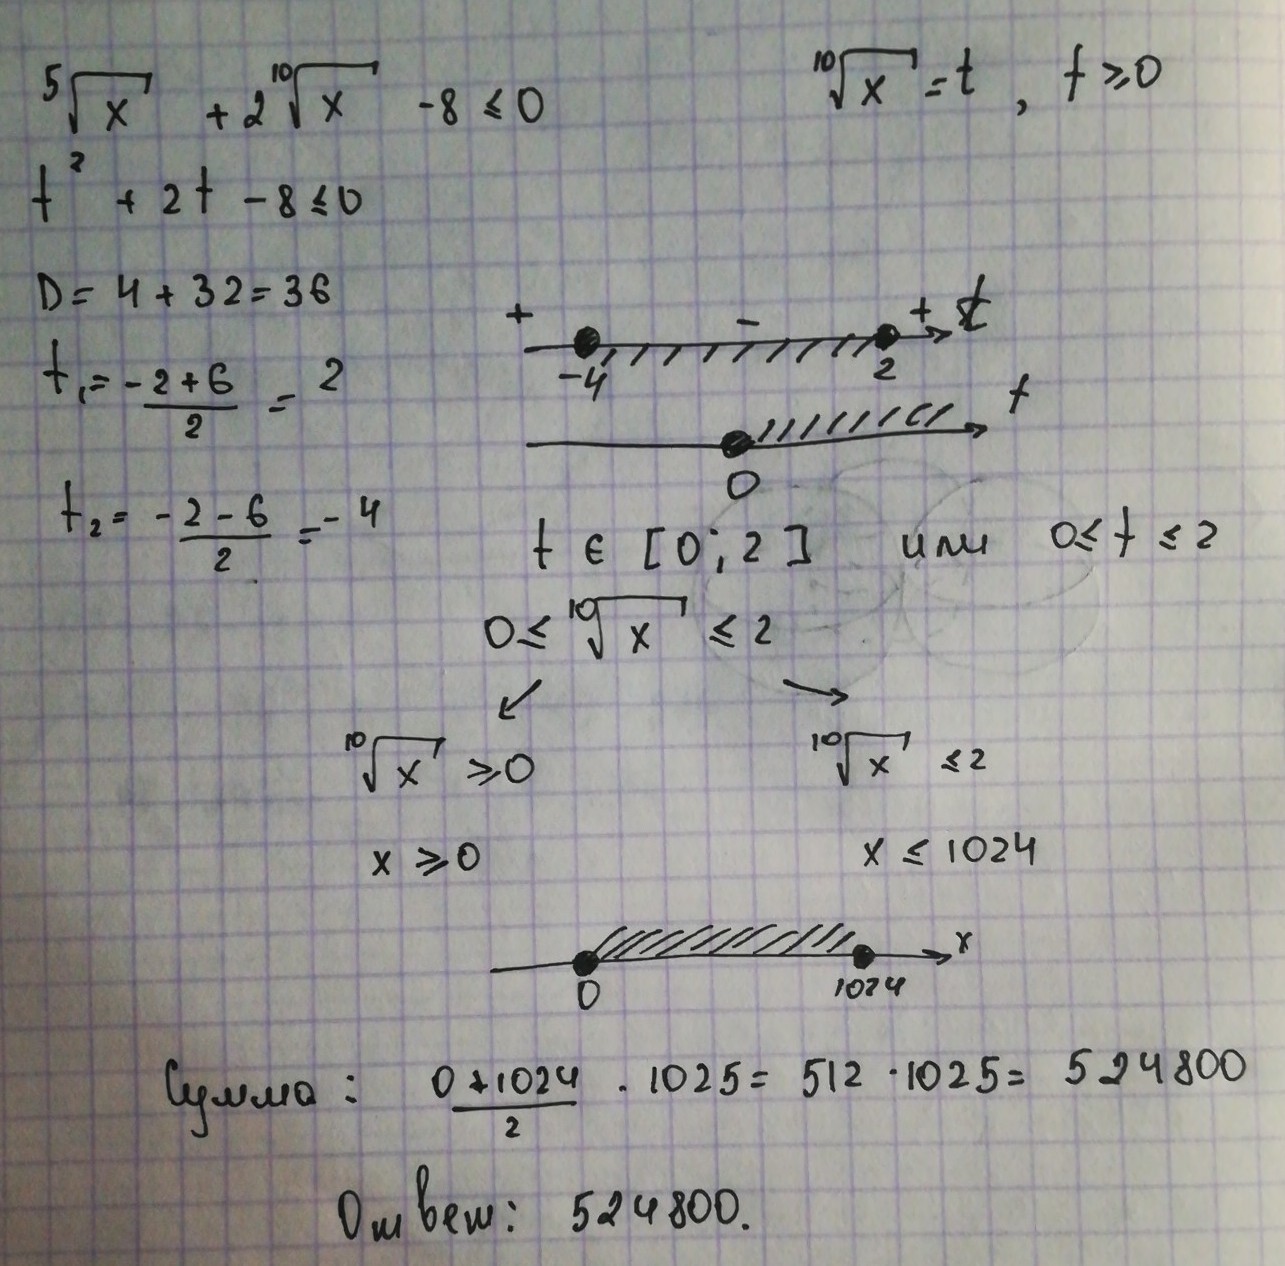 ⁵√x + 2 ¹⁰√x - 8 ≤ 0
¹⁰√x = t , t ≥ 0
t² + 2t - 8 ≤ 0
D = 4 + 32 = 36
+ - + t
-4 2
t₁ = (-2 + 6)/2 = 2
t
0
t₂ = (-2 - 6)/2 = -4
t ∈ [0; 2] или 0 ≤ t ≤ 2
0 ≤ ¹⁰√x ≤ 2
¹⁰√x ≥ 0 ¹⁰√x ≤ 2
x ≥ 0 x ≤ 1024
x
0 1024
Сумма : (0 + 1024)/2 · 1025 = 512 · 1025 = 524800
Ответ: 524800.